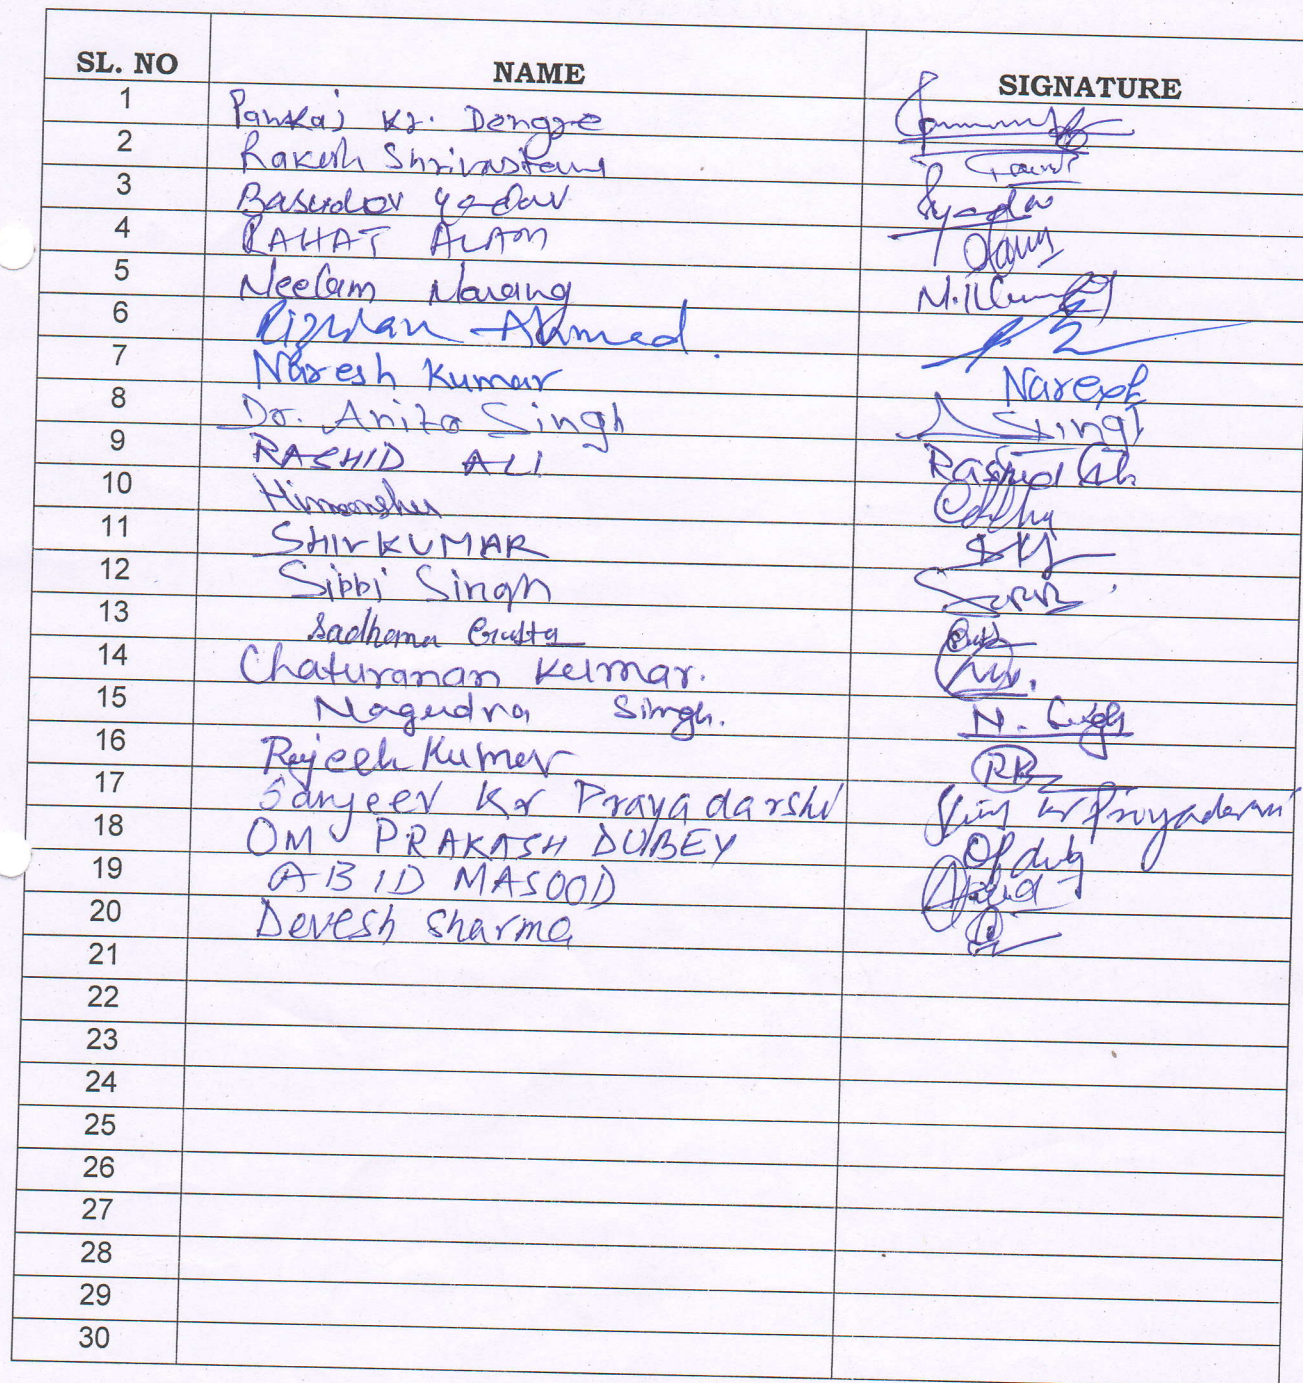 SL. NO NAME SIGNATURE
1 Pankaj Kr. Dongre
2 Rakesh Shrivastava
3 Basudev Yadav Byadav
4 RAHAT ALAM
5 Neelam Narang
6 Rizwan Ahmed.
7 Naresh Kumar Naresh
8 Dr. Anita Singh Singh
9 RASHID ALI Rashid Ali
10 Himanshu
11 SHIVKUMAR
12 Sibbi Singh
13 Sadhana Gupta
14 Chaturanan Kumar.
15 Nagendra Singh. N. Singh
16 Rajeesh Kumar RK
17 Sanjeev Kr Prayadarshi Kr Priyadarshi
18 OM PRAKASH DUBEY OP dubey
19 ABID MASOOD Abid
20 Devesh Sharma
21
22
23
24
25
26
27
28
29
30